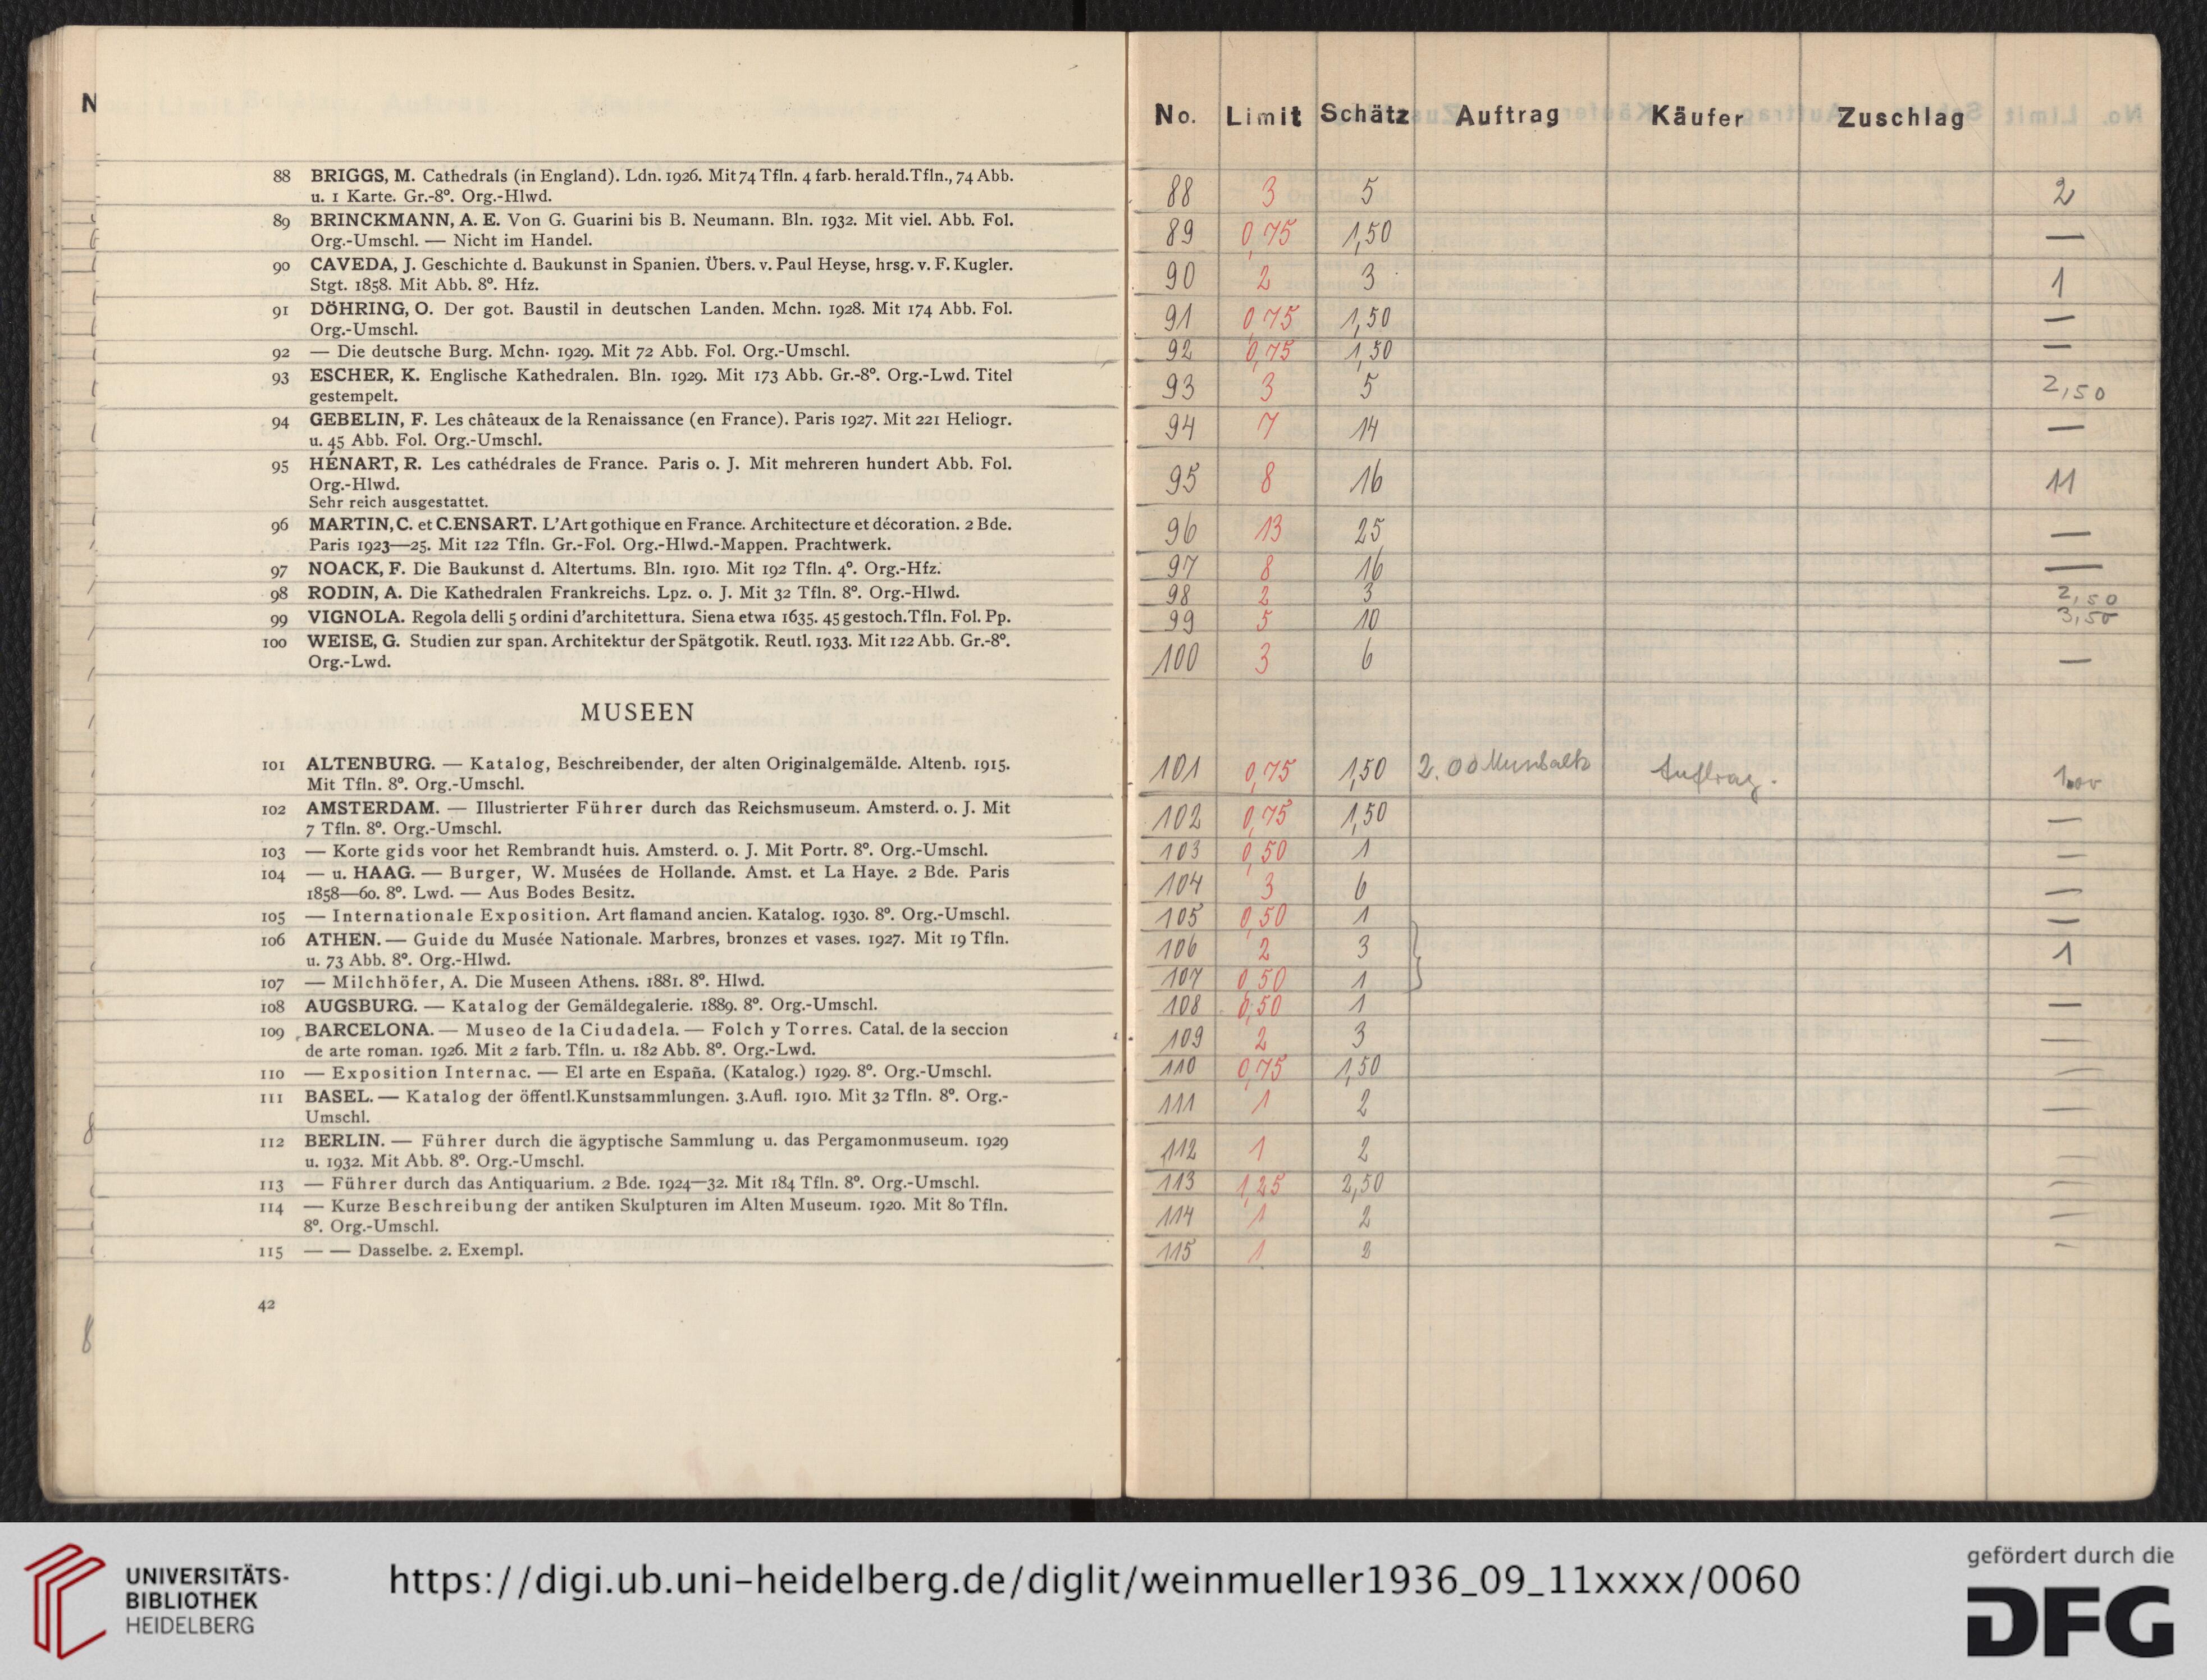 N
88 BRIGGS, M. Cathedrals (in England). Ldn. 1926. Mit 74 Tfln. 4 farb. herald. Tfln., 74 Abb.
u. 1 Karte. Gr.-8º. Org.-Hlwd.
89 BRINCKMANN, A. E. Von G. Guarini bis B. Neumann. Bln. 1932. Mit viel. Abb. Fol.
Org.-Umschl. — Nicht im Handel.
90 CAVEDA, J. Geschichte d. Baukunst in Spanien. Übers. v. Paul Heyse, hrsg. v. F. Kugler.
Stgt. 1858. Mit Abb. 8º. Hfz.
91 DÖHRING, O. Der got. Baustil in deutschen Landen. Mchn. 1928. Mit 174 Abb. Fol.
Org.-Umschl.
92 — Die deutsche Burg. Mchn. 1929. Mit 72 Abb. Fol. Org.-Umschl.
93 ESCHER, K. Englische Kathedralen. Bln. 1929. Mit 173 Abb. Gr.-8º. Org.-Lwd. Titel
gestempelt.
94 GEBELIN, F. Les châteaux de la Renaissance (en France). Paris 1927. Mit 221 Heliogr.
u. 45 Abb. Fol. Org.-Umschl.
95 HÉNART, R. Les cathédrales de France. Paris o. J. Mit mehreren hundert Abb. Fol.
Org.-Hlwd.
Sehr reich ausgestattet.
96 MARTIN, C. et C. ENSART. L'Art gothique en France. Architecture et décoration. 2 Bde.
Paris 1923—25. Mit 122 Tfln. Gr.-Fol. Org.-Hlwd.-Mappen. Prachtwerk.
97 NOACK, F. Die Baukunst d. Altertums. Bln. 1910. Mit 192 Tfln. 4º. Org.-Hfz.
98 RODIN, A. Die Kathedralen Frankreichs. Lpz. o. J. Mit 32 Tfln. 8º. Org.-Hlwd.
99 VIGNOLA. Regola delli 5 ordini d'architettura. Siena etwa 1635. 45 gestoch. Tfln. Fol. Pp.
100 WEISE, G. Studien zur span. Architektur der Spätgotik. Reutl. 1933. Mit 122 Abb. Gr.-8º.
Org.-Lwd.
MUSEEN
101 ALTENBURG. — Katalog, Beschreibender, der alten Originalgemälde. Altenb. 1915.
Mit Tfln. 8º. Org.-Umschl.
102 AMSTERDAM. — Illustrierter Führer durch das Reichsmuseum. Amsterd. o. J. Mit
7 Tfln. 8º. Org.-Umschl.
103 — Korte gids voor het Rembrandt huis. Amsterd. o. J. Mit Portr. 8º. Org.-Umschl.
104 — u. HAAG. — Burger, W. Musées de Hollande. Amst. et La Haye. 2 Bde. Paris
1858—60. 8º. Lwd. — Aus Bodes Besitz.
105 — Internationale Exposition. Art flamand ancien. Katalog. 1930. 8º. Org.-Umschl.
106 ATHEN. — Guide du Musée Nationale. Marbres, bronzes et vases. 1927. Mit 19 Tfln.
u. 73 Abb. 8º. Org.-Hlwd.
107 — Milchhöfer, A. Die Museen Athens. 1881. 8º. Hlwd.
108 AUGSBURG. — Katalog der Gemäldegalerie. 1889. 8º. Org.-Umschl.
109 BARCELONA. — Museo de la Ciudadela. — Folch y Torres. Catal. de la seccion
de arte roman. 1926. Mit 2 farb. Tfln. u. 182 Abb. 8º. Org.-Lwd.
110 — Exposition Internac. — El arte en España. (Katalog.) 1929. 8º. Org.-Umschl.
111 BASEL. — Katalog der öffentl. Kunstsammlungen. 3. Aufl. 1910. Mit 32 Tfln. 8º. Org.-
Umschl.
112 BERLIN. — Führer durch die ägyptische Sammlung u. das Pergamonmuseum. 1929
u. 1932. Mit Abb. 8º. Org.-Umschl.
113 — Führer durch das Antiquarium. 2 Bde. 1924—32. Mit 184 Tfln. 8º. Org.-Umschl.
114 — Kurze Beschreibung der antiken Skulpturen im Alten Museum. 1920. Mit 80 Tfln.
8º. Org.-Umschl.
115 — — Dasselbe. 2. Exempl.
42
No. Limit Schätz Auftrag Käufer Zuschlag
88 3 5 2
89 0,75 1,50 —
90 2 3 1
91 0,75 1,50 —
92 0,75 1,50 —
93 3 5 2,50
94 7 14 —
95 8 16 11
96 13 25 —
97 8 16 —
98 2 3 2,50
99 5 10 3,50
100 3 6 —
101 0,75 1,50 2.00 Auftrag.
102 0,75 1,50 —
103 0,50 1 —
104 3 6 —
105 0,50 1 —
106 2 3 1
107 0,50 1
108 0,50 1 —
109 2 3 —
110 0,75 1,50 —
111 1 2 —
112 1 2 —
113 1,25 2,50 —
114 1 2 —
115 1 2 —
UNIVERSITÄTS-
BIBLIOTHEK
HEIDELBERG
https://digi.ub.uni-heidelberg.de/diglit/weinmueller1936_09_11xxxx/0060
gefördert durch die
DFG